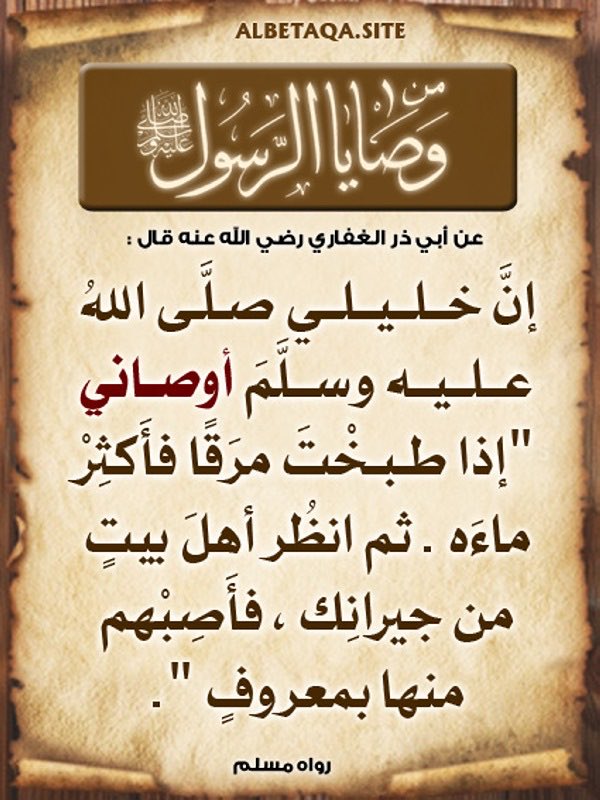 ALBETAQA.SITE
من
وَصَايَا الرَّسُول ﷺ
عن أبي ذر الغفاري رضي الله عنه قال :
إنَّ خـلـيـلـي صـلَّـى اللهُ
عـلـيـه وسـلَّـمَ أوصـاني
"إذا طـبـخْـتَ مـرَقًـا فأَكثِرْ
ماءَه . ثم انظُر أهلَ بيتٍ
من جيرانِك ، فأَصِبْهم
منها بمعروفٍ ".
رواه مسلم